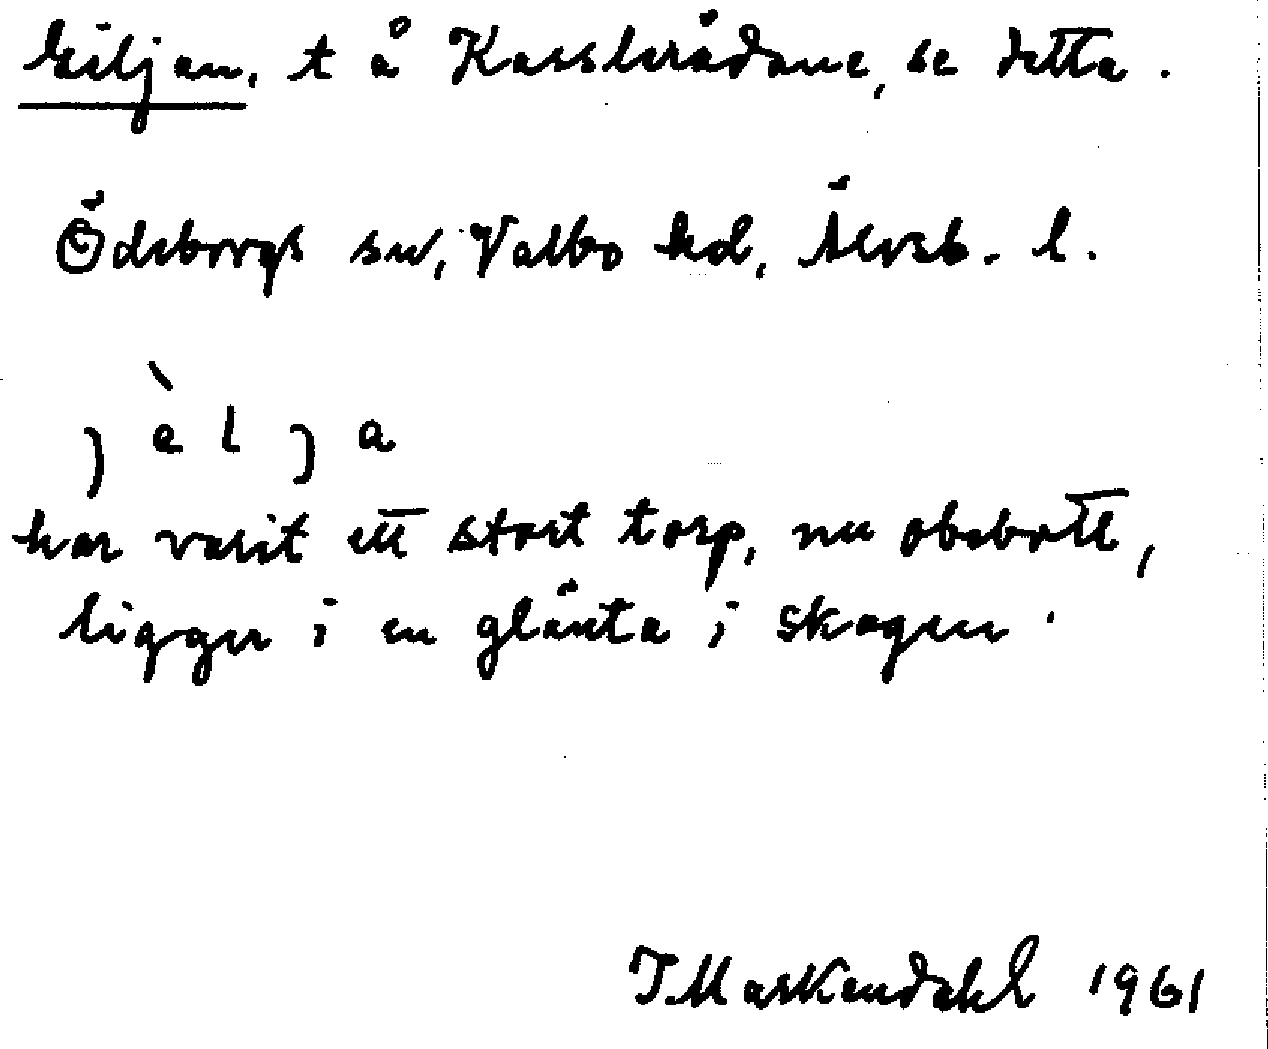 Giljan, t å Kassleråдane, se detta.
Ödeborgs sn, Valbo hd, Älvsb. l.
j è l j a
har varit ett stort torp, nu obebott,
ligger i en glänta i skogen.
J. Markendahl 1961